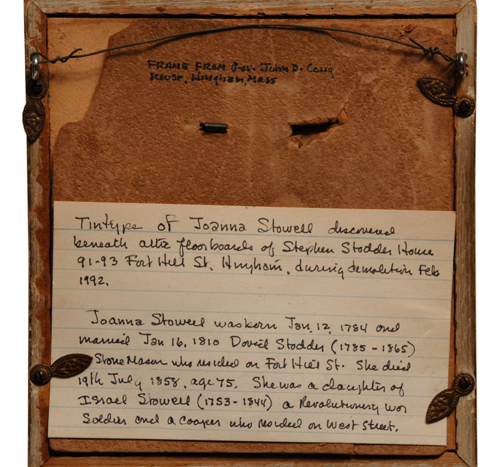 FRAME FROM Gov. John D. Long
House, Hingham, Mass
Tintype of Joanna Stowell discovered
beneath attic floorboards of Stephen Stodder House
91-93 Fort Hill St. Hingham, during demolition Feb
1992.
Joanna Stowell was born Jan. 12, 1784 and
married Jan 16, 1810 David Stodder (1785-1865)
Stone Mason who resided on Fort Hill St. She died
19th July 1858, age 75. She was a daughter of
Israel Stowell (1753-1844) a Revolutionary war
Soldier and a cooper who resided on West Street.